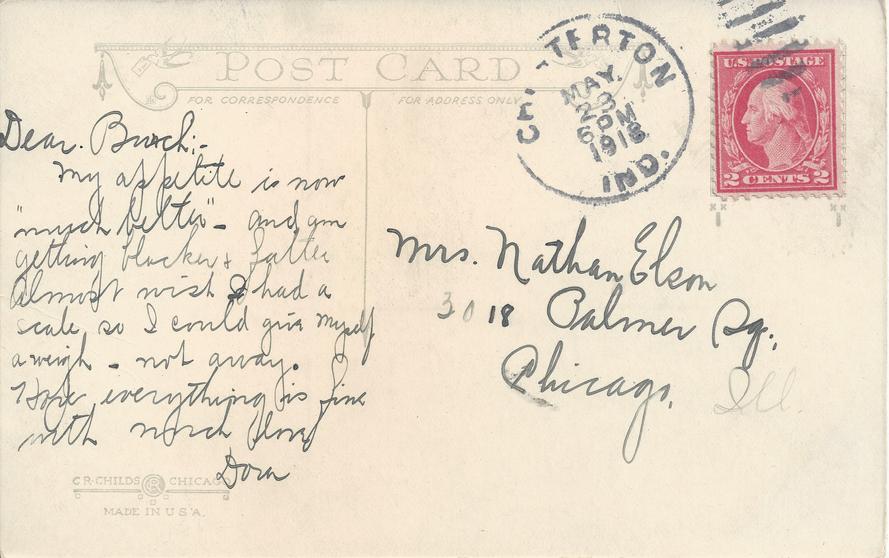 POST CARD
FOR CORRESPONDENCE
FOR ADDRESS ONLY
CHESTERTON
MAY.
28
6 PM
1918
IND.
U.S. POSTAGE
2 CENTS 2
Dear.
My appetite is now
"much better" - and am
getting blacker & fatter
Almost wish I had a
scale so I could give myself
a weigh - not away.
Hope everything is fine
with much love
Dora
Mrs. Nathan Elson
3018 Palmer Sq.,
Chicago,
Ill.
C.R. CHILDS CHICAGO
MADE IN U.S.A.